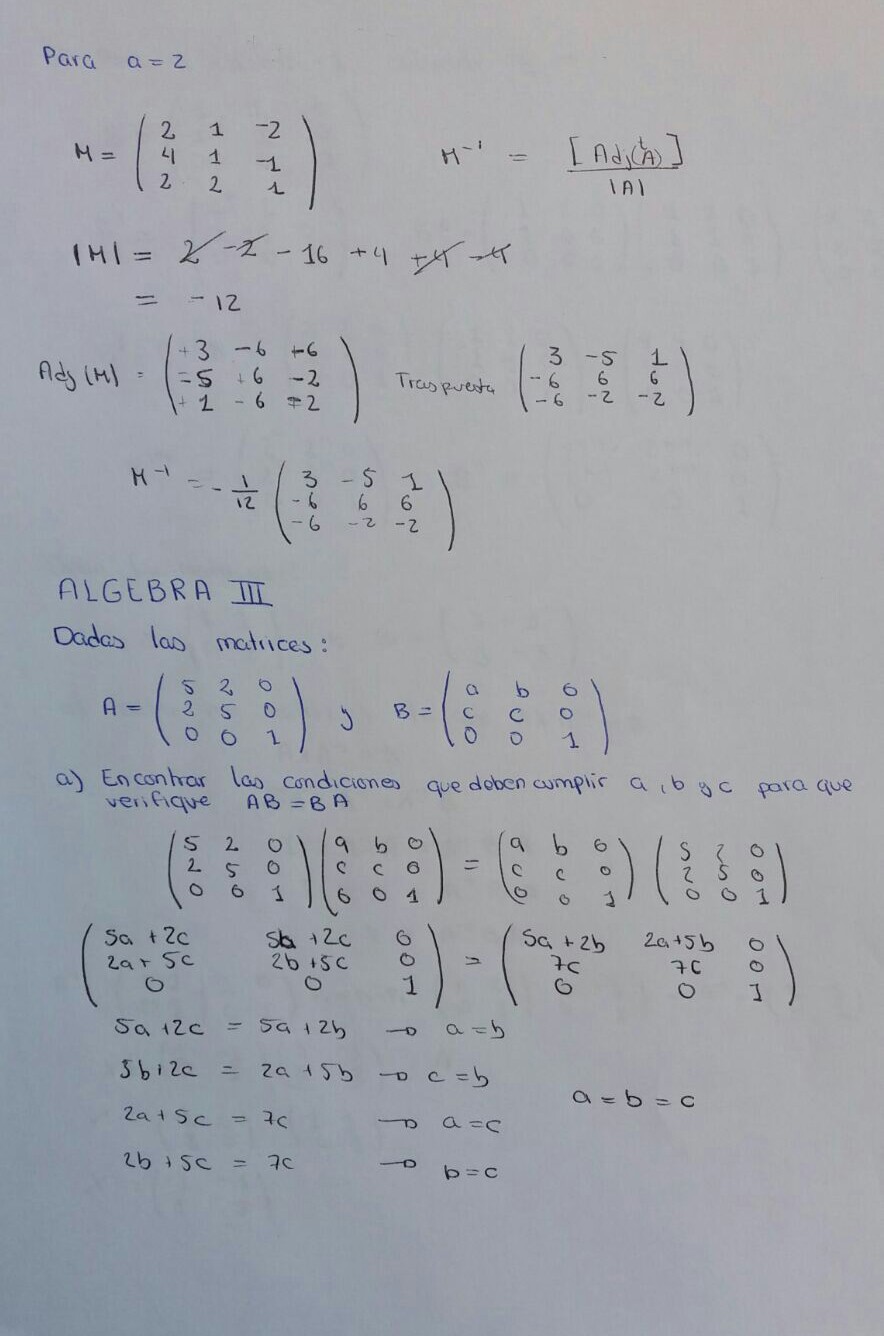 Para a = 2
M = ( 2 1 -2
4 1 -1
2 2 1 )
M⁻¹ = [Adj(ᵗA)] / |A|
|M| = 2 - 2 - 16 + 4 + 4 - 4
= - 12
Adj (M) = ( +3 -6 +6
-5 +6 -2
+1 -6 -2 )
Traspuesta ( 3 -5 1
-6 6 6
-6 -2 -2 )
M⁻¹ = - 1/12 ( 3 -5 1
-6 6 6
-6 -2 -2 )
ALGEBRA III
Dadas las matrices:
A = ( 5 2 0
2 5 0
0 0 1 )
y B = ( a b 0
c c 0
0 0 1 )
a) Encontrar las condiciones que deben cumplir a, b y c para que
verifique AB = BA
( 5 2 0
2 5 0
0 0 1 ) ( a b 0
c c 0
0 0 1 ) = ( a b 0
c c 0
0 0 1 ) ( 5 2 0
2 5 0
0 0 1 )
( 5a + 2c 5b + 2c 0
2a + 5c 2b + 5c 0
0 0 1 ) = ( 5a + 2b 2a + 5b 0
7c 7c 0
0 0 1 )
5a + 2c = 5a + 2b → a = b
5b + 2c = 2a + 5b → c = b
a = b = c
2a + 5c = 7c → a = c
2b + 5c = 7c → b = c